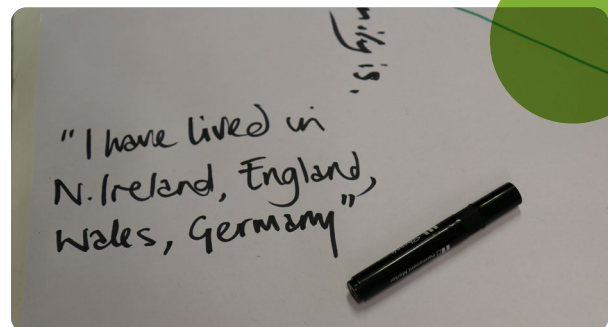 "I have lived in
N. Ireland, England,
Wales, Germany"
is.